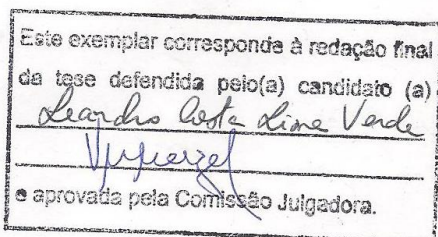 Este exemplar corresponde à redação final
da tese defendida pelo(a) candidato (a)
Leandro Costa Lima Verde
e aprovada pela Comissão Julgadora.